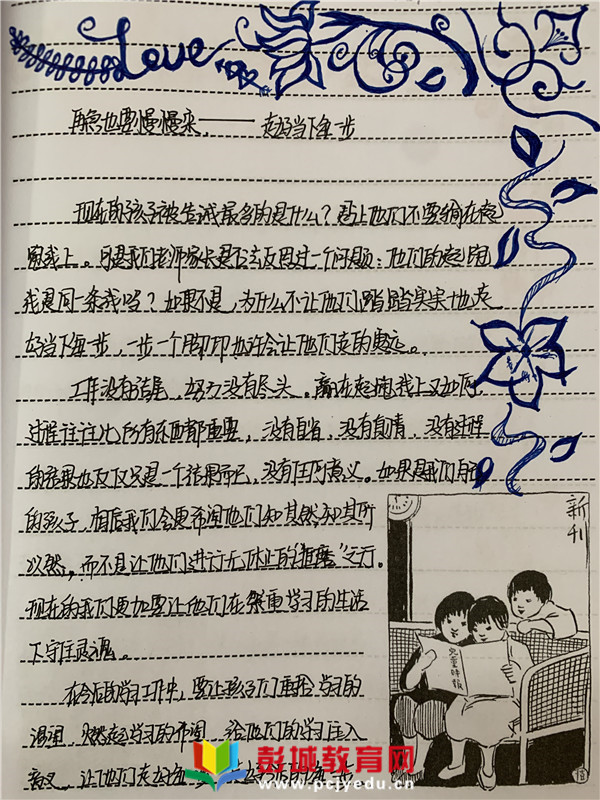 Love
再急也要慢慢来——走好当下每一步
现在的孩子被告诫最多的是什么？是让他们不要输在起
跑线上。可是我们老师家长是否去反思过一个问题：他们的起跑
线是同一条线吗？如果不是，为什么不让他们踏踏实实地走
好当下每一步，一步一个脚印也许会让他们走的更远。
工作没有结尾，努力没有尽头。赢在起跑线上又如何
过程往往比所有东西都重要，没有自省，没有真情，没有过程
的结果也仅仅只是一个结果而已，没有任何意义。如果是我们自己
的孩子，相信我们会更希望他们知其然知其所
以然，而不是让他们进行无休止的“推磨”运行。
现在的我们更加要让他们在繁重学习的生活
下守住灵魂。
在今后的学习工作中，要让孩子们重拾学习的
渴望，燃起学习的希望，给他们的学习注入
意义，让他们走好每一步
新刊
儿童时报
彭城教育网
www.pcjyedu.cn